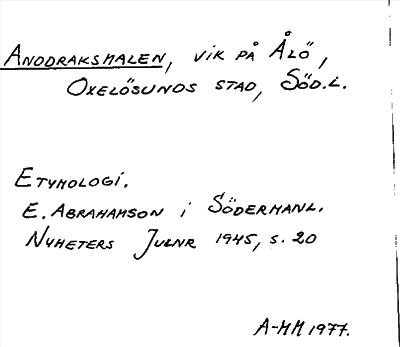 ANDDRAKSHALEN, VIK PÅ ÅLÖ,
OXELÖSUNDS STAD, SÖD.L.
ETYMOLOGI.
E. ABRAHAMSON i SÖDERMANL.
NYHETERS JULNR 1945, S. 20
A-MM 1977.